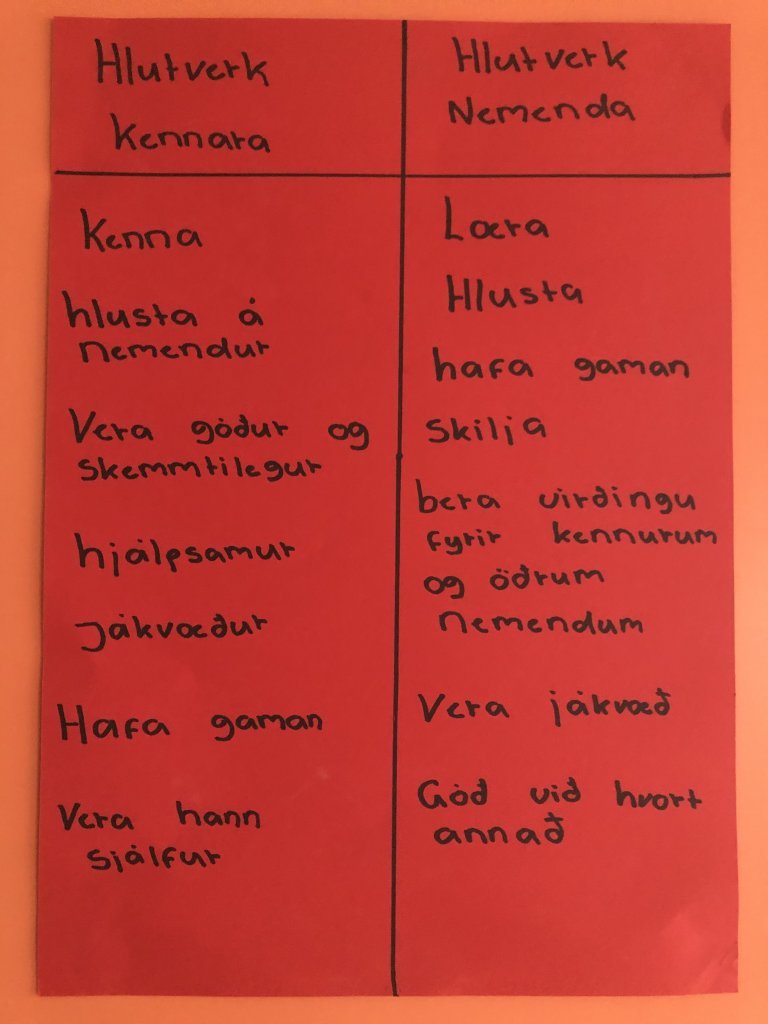 Hlutverk
Kennara
Kenna
hlusta á
nemendur
Vera góður og
skemmtilegur
hjálpsamur
jákvæður
Hafa gaman
Vera hann
sjálfur
Hlutverk
Nemenda
Læra
Hlusta
hafa gaman
skilja
bera virðingu
fyrir kennurum
og öðrum
nemendum
Vera jákvæð
Góð við hvort
annað